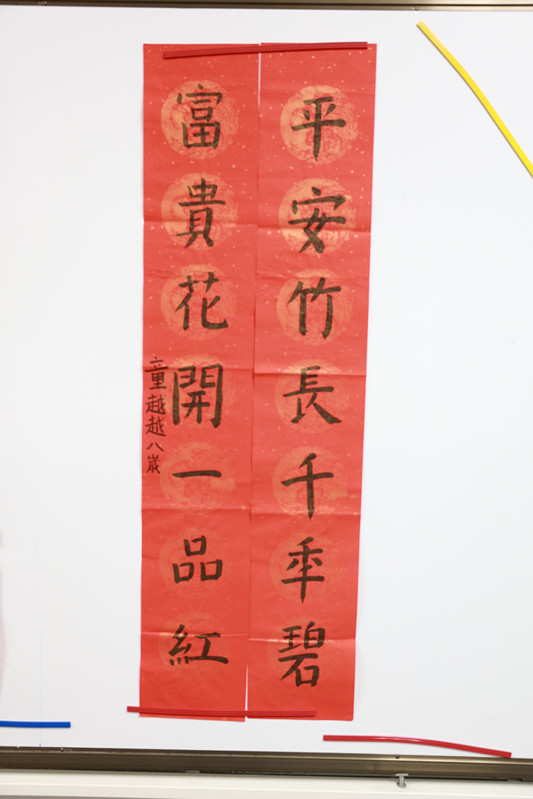 平安竹長千年碧
富貴花開一品紅
童越越八歲